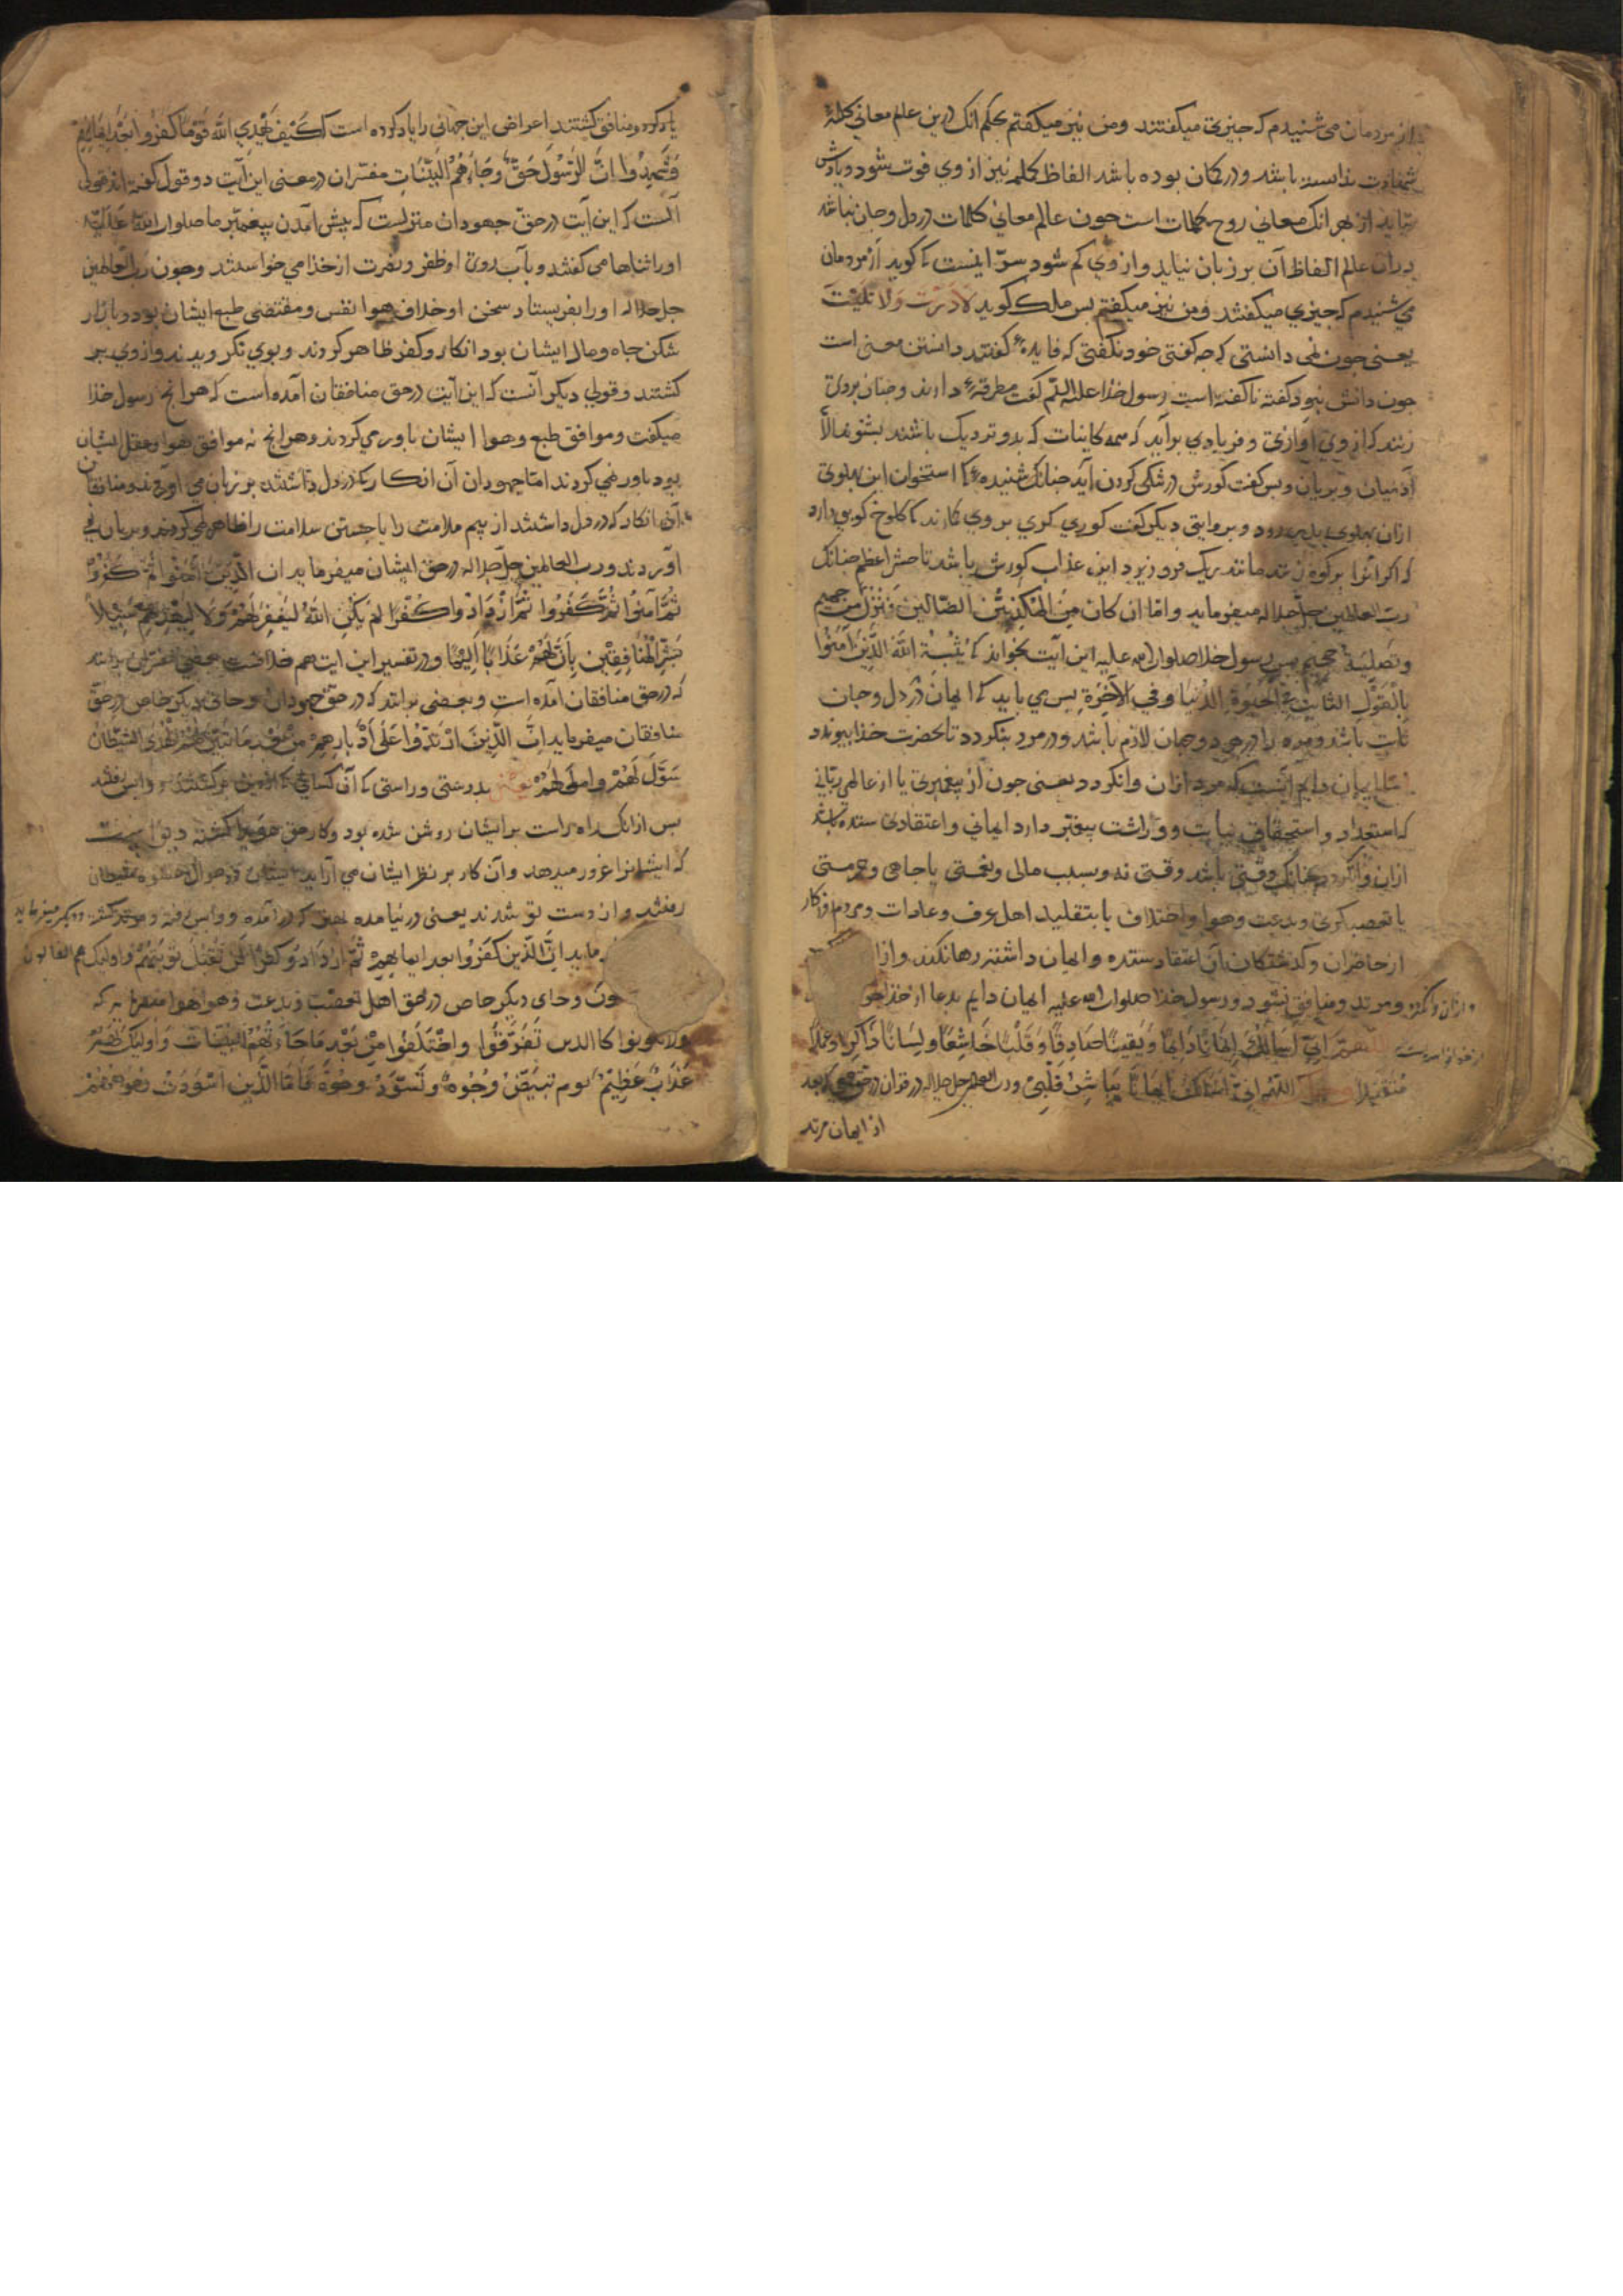 از مردمان می شنیدم که جیزی میکفتند ومن نیز میکفتم بحکم انک درین عالم معانی کلمۀ
شهادت ندانسته باشد ودر کمان بوده باشد الفاظ کلمه نیز از وی فوت شود ویادش
نیاید از بهر انک معانی روح کلمات است جون عالم معانی کلمات در دل وجان نباشد
دران عالم الفاظ آن بر زبان نیاید واز وی کم شود سرّ اینست کی کوید از مردمان
می شنیدم که جیزی میکفتند ومن نیز میکفتم بس ملک کوید لَادَرَیْتَ وَلَا تَلَیْتَ
یعنی جون نمی دانستی که جه کفتی خود نکفتی که فایدۀ کفتن دانستن معنی است
جون دانش نبود کفته ناکفته است رسول خدا علیه السّلم کفت مطرقۀ دارند وجنان بروی
زنند که از وی اوازی وفریادی برآید که همه کاینات که بدو نزدیک باشند بشنوند الّا
آدمیان وپریان وبس کفت کورش در شکی کردن آید جنانک شنیدۀ کا استخوان این بهلوی
ازان بهلوی بیرون رود وبروایتی دیکر کفت کوری کری بر وی کارند تا کلوخ کوبی دارد
که اکر انرا بر کوه زند مانند ریک فرو ریزد این عذاب کورش باشد تا حشر اعظم جنانک
ربّ العالمین جلّ جلاله میفرماید وامّا ان کان مِنَ المُکَذِّبِینَ الضّالِینَ فَنُزُلٌ مِن حمیم
وتصلیة جحیم بس رسول خدا صلوات الله علیه این آیت بخواند کی یُثَبِّتُ اللّهُ الَّذِینَ آمَنُوا
بِالْقَوْلِ الثَّابِتِ فِی الْحَیوةِ الدُّنْیَا وَفِی الآخِرَةِ بس می باید کی ایمان در دل وجان
ثابت باشد ومرد را در هر دو جهان لازم باشد ودر مرد بنکردد تا بحضرت خدا بیوندد
ایمان دایم آنست که مرد ازان وانکردد یعنی جون از بیغمبری یا از عالمی ربّانی
که استعداد واستحقاق نیابت ووراثت بیغمبر دارد ایمانی واعتقادی ستده باشد
ازان وانکردد جنانک وقتی باشد وقتی نه وبسبب مالی ونعمتی یا جاهی وحرمتی
یا تعصب کری وبدعت وهوا واختلاف یا بتقلید اهل عرف وعادات ومردم روزکار
از حاضران وکذشتکان آن اعتقاد ستده وایمان داشته رها نکند واز
ومرتد ومنافق نشود ورسول خدا صلوات الله علیه ایمان دایم بدعا از خدا
اللّهمّ انّی اسألک ایمانًا دَایمًا وَیَقِینًا صَادِقًا وَقَلْبًا خَاشِعًا وَلِسَانًا ذَاکِرًا وَعَمَلًا
مُتَقَبَّلًا اللّهُمّ انّی أسْئَلُکَ ایمَانًا یُبَاشِرُ قَلْبِی وربّ العالمین جلّ جلاله در قران در حق
از ایمان مرتد
ومنافق کشتند اعراض این جهانی را یاد کرده است کَیْفَ یَهْدِی اللّهُ قَوْمًا کَفَرُوا بَعْدَ ایمَانِهِمْ
وَشَهِدُوا انَّ الرَّسُولَ حَقٌّ وَجَاءَهُمُ الْبَیِّنَاتِ مفسّران در معنی این آیت دو قول کفته اند قولی
آنست که این آیت در حقّ جهودان منزلست که بیش آمدن بیغمبر ما صلوات الله علیه
اورا ثناها می کفتند وبآب روی او ظفر ونصرت از خدا می خواستند وجون ربّ العالمین
جل جلاله اورا بفرستاد سخن او خلاف هوا نفس ومقتضی طبع ایشان بود وبازار
شکن جاه ومال ایشان بود انکار وکفر ظاهر کردند وبوی نکرویدند واز وی
کشتند وقولی دیکر آنست که این آیت در حق منافقان آمده است که هر انج رسول خدا
میکفت وموافق طبع وهوا ایشان باور می کردند وهر انج نه موافق هوا وعقل ایشان
بود باور نمی کردند امّا جهودان آن انکار که در دل داشتند بر زبان می آوردند ومنافقان
آن انکار که در دل داشتند از بیم ملامت را یا جستن سلامت را ظاهر نمی کردند وبزبان نمی
آوردند وربّ العالمین جلّ جلاله در حق ایشان میفرماید ان الَّذِینَ آمَنُوا ثُمَّ کَفَرُوا
ثُمَّ آمَنُوا ثُمَّ کَفَرُوا ثُمَّ ازْدَادُوا کُفْرًا لَمْ یَکُنِ اللّهُ لِیَغْفِرَ لَهُمْ وَلَا لِیَهْدِیَهُمْ سَبِیلًا
بَشِّرِ الْمُنَافِقِینَ بِأَنَّ لَهُمْ عَذَابًا أَلِیمًا ودر تفسیر این ایت هم خلافست بعضی بر انند
که در حق منافقان آمده است وبعضی بر انند که در حق جهودان وجای دیکر خاص در حقّ
منافقان میفرماید اِنَّ الَّذِینَ ارْتَدُّوا عَلَی أَدْبَارِهِمْ مِنْ بَعْدِ مَا تَبَیَّنَ لَهُمُ الْهُدَی الشَّیْطَانُ
سَوَّلَ لَهُمْ واملی لَهُمْ یعنی بدرستی وراستی کی آن کسانی کی از دین برکشتند وابس رفتند
بس ازانک راه راست بر ایشان روشن شده بود وکار حق هویدا کشته دیو است
که ایشانرا غرور میدهد وآن کار بر نظر ایشان می آراید
رفتند واز دست تو شدند یعنی در نیامده
ماید انَّ الَّذِینَ کَفَرُوا بعد ایمانِهِمْ ثُمَّ ازْدَادُوا کُفْرًا لَنْ تُقْبَلَ تَوْبَتُهُمْ واولیک هم الضالون
وجای دیکر خاص در حق اهل تعصّب وبدعت وهوا میفرماید که
ولا تکونوا کالذین تَفَرَّقُوا وَاخْتَلَفُوا مِنْ بَعْدِ مَا جَاءَهُمُ الْبَیِّنَات وَأولئِکَ لَهُمْ
عَذَابٌ عَظِیمٌ یوم تَبْیَضُّ وُجُوهٌ وَتَسْوَدُّ وُجُوهٌ فَأَمَّا الَّذِینَ اسْوَدَّتْ وُجُوهُهُمْ